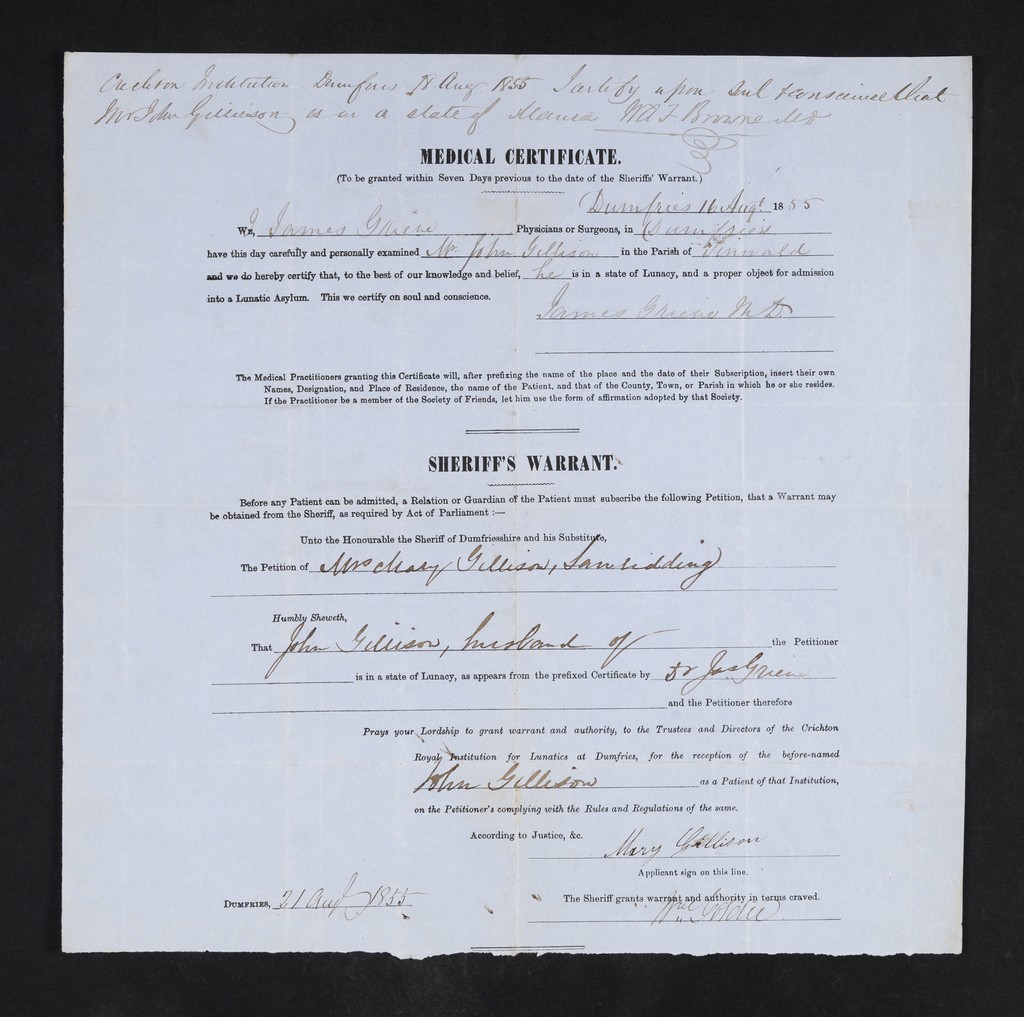 Crichton Institution Dumfries 18 Aug 1855 I certify upon soul & conscience that
Mr John Gillieson is in a state of Mania WAF Browne MD
MEDICAL CERTIFICATE.
(To be granted within Seven Days previous to the date of the Sheriffs' Warrant.)
Dumfries 16 Augt. 1855
We, I, James Grieve Physicians or Surgeons, in Dumfries
have this day carefully and personally examined Mr. John Gillison in the Parish of Tinwald
and we do hereby certify that, to the best of our knowledge and belief, he is in a state of Lunacy, and a proper object for admission
into a Lunatic Asylum. This we certify on soul and conscience.
James Grieve M.D.
The Medical Practitioners granting this Certificate will, after prefixing the name of the place and the date of their Subscription, insert their own
Names, Designation, and Place of Residence, the name of the Patient, and that of the County, Town, or Parish in which he or she resides.
If the Practitioner be a member of the Society of Friends, let him use the form of affirmation adopted by that Society.
SHERIFF'S WARRANT.
Before any Patient can be admitted, a Relation or Guardian of the Patient must subscribe the following Petition, that a Warrant may
be obtained from the Sheriff, as required by Act of Parliament :—
Unto the Honourable the Sheriff of Dumfriesshire and his Substitute,
The Petition of Mrs Mary Gillison,
Humbly Sheweth,
That John Gillison, husband of the Petitioner
is in a state of Lunacy, as appears from the prefixed Certificate by Dr Jas Grieve
and the Petitioner therefore
Prays your Lordship to grant warrant and authority, to the Trustees and Directors of the Crichton
Royal Institution for Lunatics at Dumfries, for the reception of the before-named
John Gillison as a Patient of that Institution,
on the Petitioner's complying with the Rules and Regulations of the same.
According to Justice, &c.
Mary Gillison
Applicant sign on this line.
Dumfries, 21 Augt 1855
The Sheriff grants warrant and authority in terms craved.